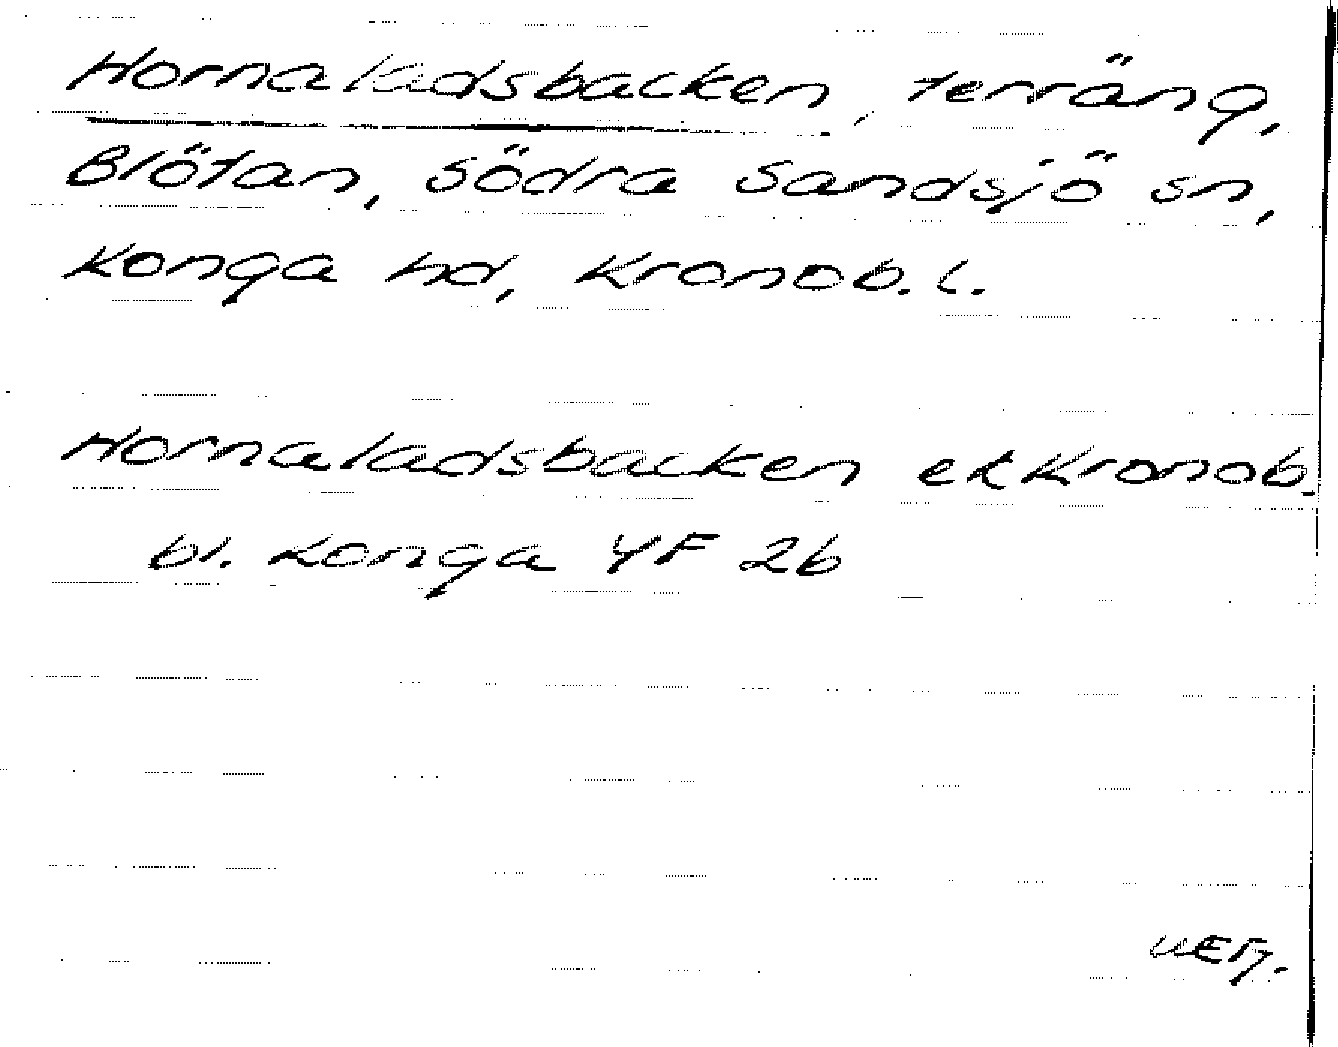 Hornaladsbacken, terräng,
Blötan, Södra Sandsjö sn,
Konga hd, Kronob. l.
Hornaladsbacken ek Kronob.
bl. Konga 4F 2b